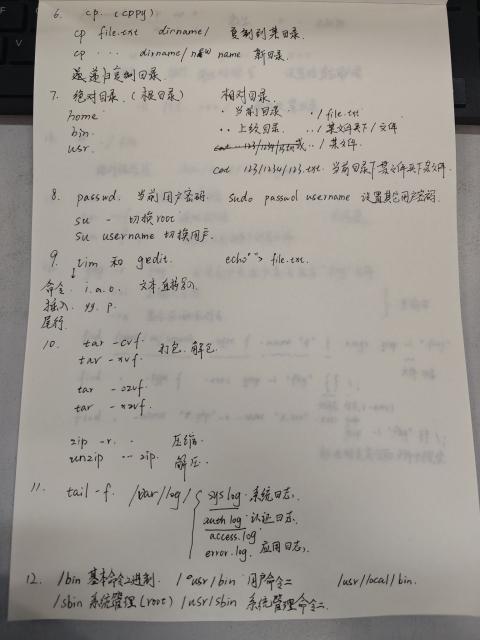 6. cp. (copy)
cp file.txt dirname/ 复制到某目录.
cp ··· dirname/new name 新目录.
递归复制目录
7. 绝对目录. (根目录) 相对目录.
home · 当前目录 ./file.txt
bin. ·· 上级目录. ../某文件夹下/文件
usr. ./某文件.
cat 123/1234/123.txt. 当前目录下某文件夹下某文件.
8. passwd. 当前用户密码. sudo passwd username 设置其他用户密码.
su - 切换root
su username 切换用户.
9. vim 和 gedit. echo"">file.txt.
命令. i.a.o. 文本.
插入. yy. p.
尾行.
10. tar -cvf. 打包. 解包.
tar -xvf.
tar -czvf.
tar -xzvf.
zip -r. · 压缩.
unzip ··· zip. 解压.
11. tail -f. /var/log/ syslog. 系统日志.
auth log. 认证日志.
access.log.
error.log. 应用日志.
12. /bin 基本命令二进制. /usr/bin 用户命令二 /usr/local/bin.
/sbin 系统管理(root) /usr/sbin 系统管理命令二.